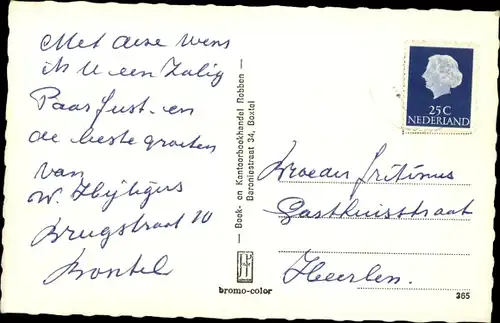 Met deze wens
ik U een Zalig
Paasfeest en
de beste groeten
van
W. Heijligers
Brugstraat 10
Boxtel
Boek- en Kantoorboekhandel Robben —
Baroniestraat 34, Boxtel
bromo-color
25C
NEDERLAND
Broeder
Gasthuisstraat
Heerlen.
365